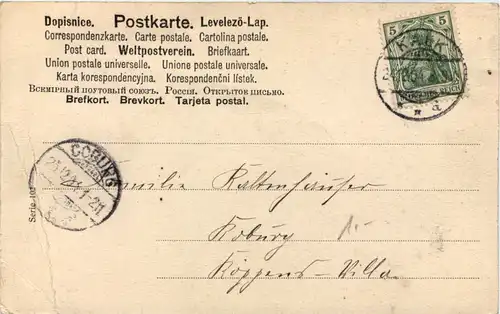 Dopisnice. Postkarte. Levelező-Lap.
Correspondenzkarte. Carte postale. Cartolina postale.
Post card. Weltpostverein. Briefkaart.
Union postale universelle. Unione postale universale.
Karta korespondencyjna. Korespondenční lístek.
Всемірный почтовый союзъ. Россія. Открытое письмо.
Brefkort. Brevkort. Tarjeta postal.
5 5
KALK
COBURG
1-2N
Serie 102
Familie Kaltenhäuser
Koburg
1.-
Köppens-Villa